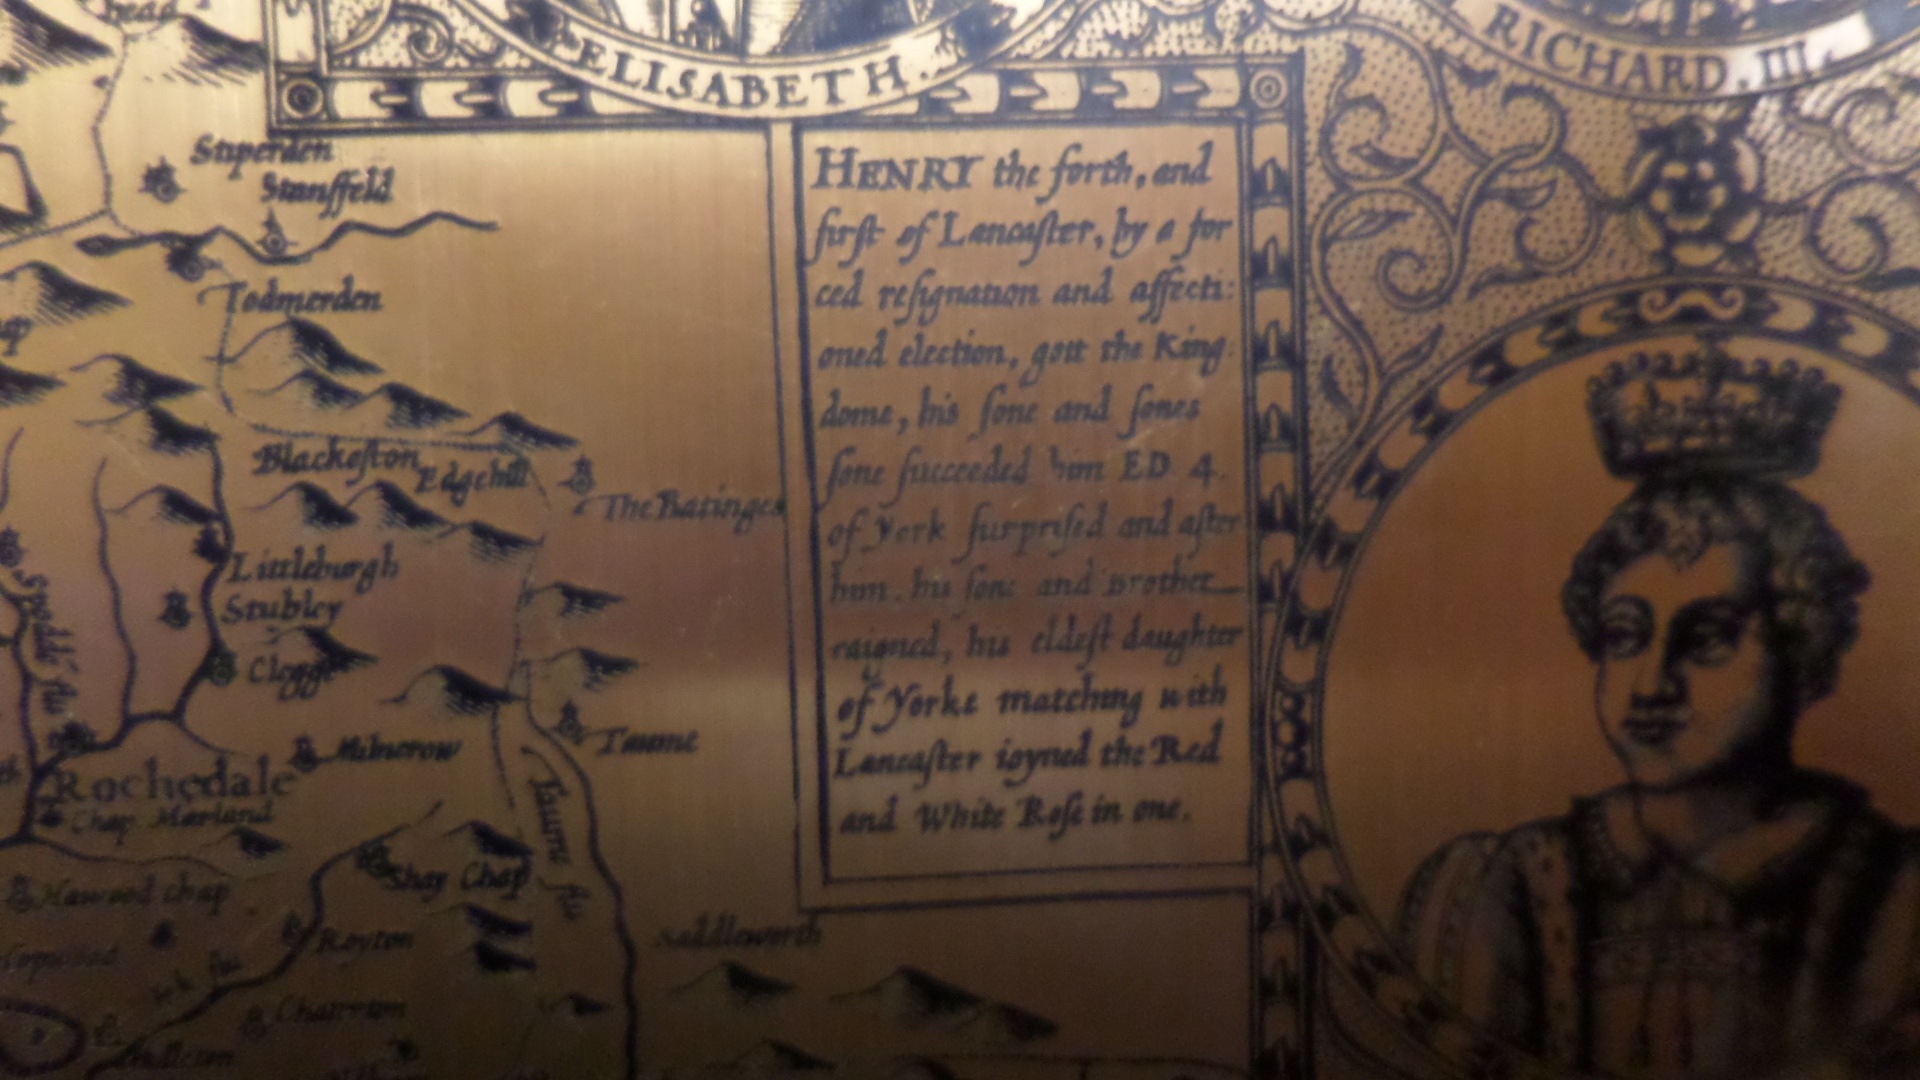 head
ELISABETH.
RICHARD. III.
Stiperden
Stansfeld
Todmorden
Blackeston Edgehill
The Batinges
Littleburgh
Stubley
Clegge
Milnerow
Taume
Rochedale
Chap. Marland
Taume flu
Hawood chap
Shay Chap
Royton
Saddleworth
HENRY the forth, and
first of Lancaster, by a for
ced resignation and affecti:
oned election, gott the King:
dome, his sone and sones
sone succeeded him ED 4.
of York surprised and after
him, his sone and Brother
raigned, his eldest daughter
of Yorke matching with
Lancaster ioyned the Red
and White Rose in one.